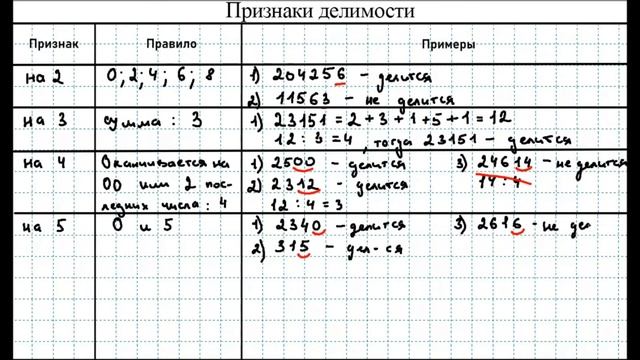 Признаки делимости
Признак Правило Примеры
на 2 0; 2; 4; 6; 8 1) 204256 – делится
2) 11563 – не делится
на 3 сумма : 3 1) 23151 = 2+3+1+5+1=12
12 : 3 = 4, тогда 23151 – делится
на 4 Оканчивается на 00 или 2 пос-
ледних числа : 4
1) 2500 – делится
2) 2312 – делится
12 : 4 = 3
3) 24614 – не делится
14 : 4
на 5 0 и 5 1) 2340 – делится
2) 315 – дел-ся
3) 2616 – не де